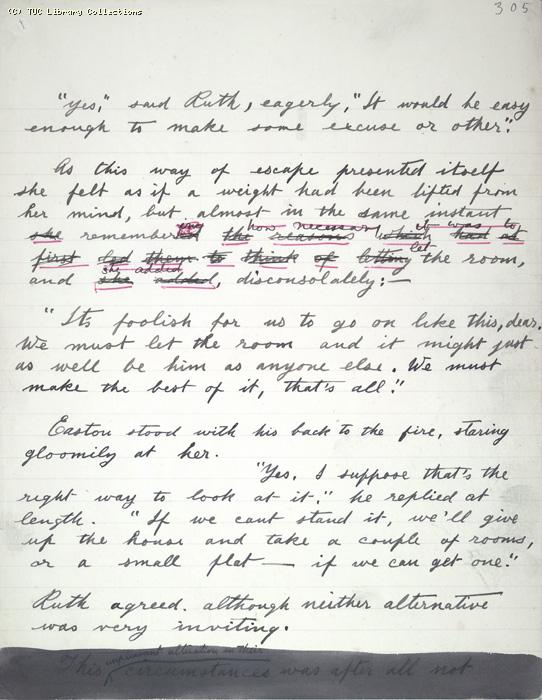 (C) TUC Library Collections
305
"Yes," said Ruth, eagerly, "It would be easy
enough to make some excuse or other."
As this way of escape presented itself
she felt as if a weight had been lifted from
her mind, but almost in the same instant
ing how necessary it was to
she remembered the reasons which had at
first led them to think of letting let the room,
she added
and she added, disconsolately:—
"It's foolish for us to go on like this, dear.
We must let the room and it might just
as well be him as anyone else. We must
make the best of it, that's all."
Easton stood with his back to the fire, staring
gloomily at her.
"Yes, I suppose that's the
right way to look at it," he replied at
length. "If we cant stand it, we'll give
up the house and take a couple of rooms,
or a small flat — if we can get one."
Ruth agreed, although neither alternative
was very inviting.
alteration in their
This circumstances was after all not